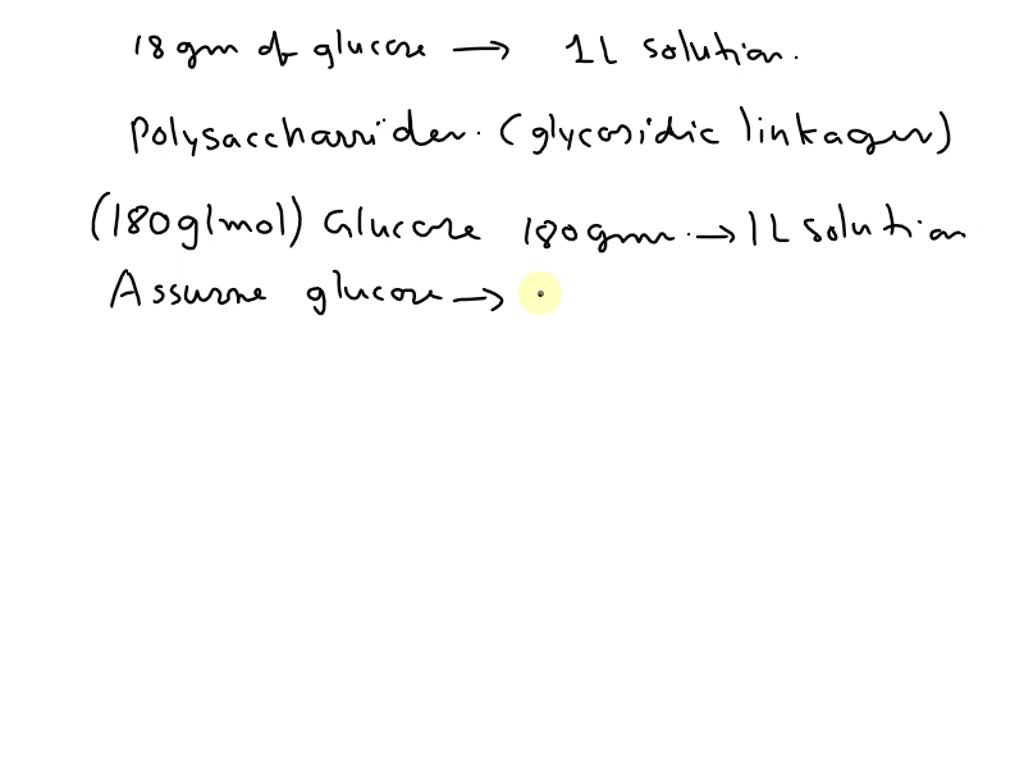 18 gm of glucose → 1L solution.
Polysaccharides. (glycosidic linkages)
(180g/mol) Glucose 180 gms. → 1L solution
Assume glucose →